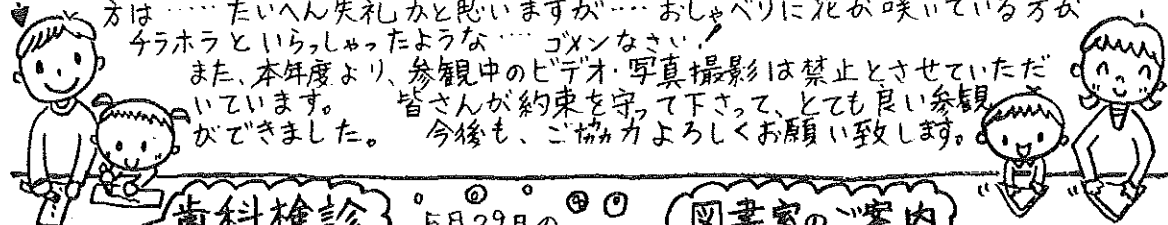 方は……たいへん失礼かと思いますが……おしゃべりに花が咲いている方が
チラホラといらっしゃったような…ゴメンなさい！
また、本年度より、参観中のビデオ・写真撮影は禁止とさせていただ
いています。 皆さんが約束を守って下さって、とても良い参観
ができました。 今後も、ご協力よろしくお願い致します。
歯科検診 5月29日の 図書室のご案内